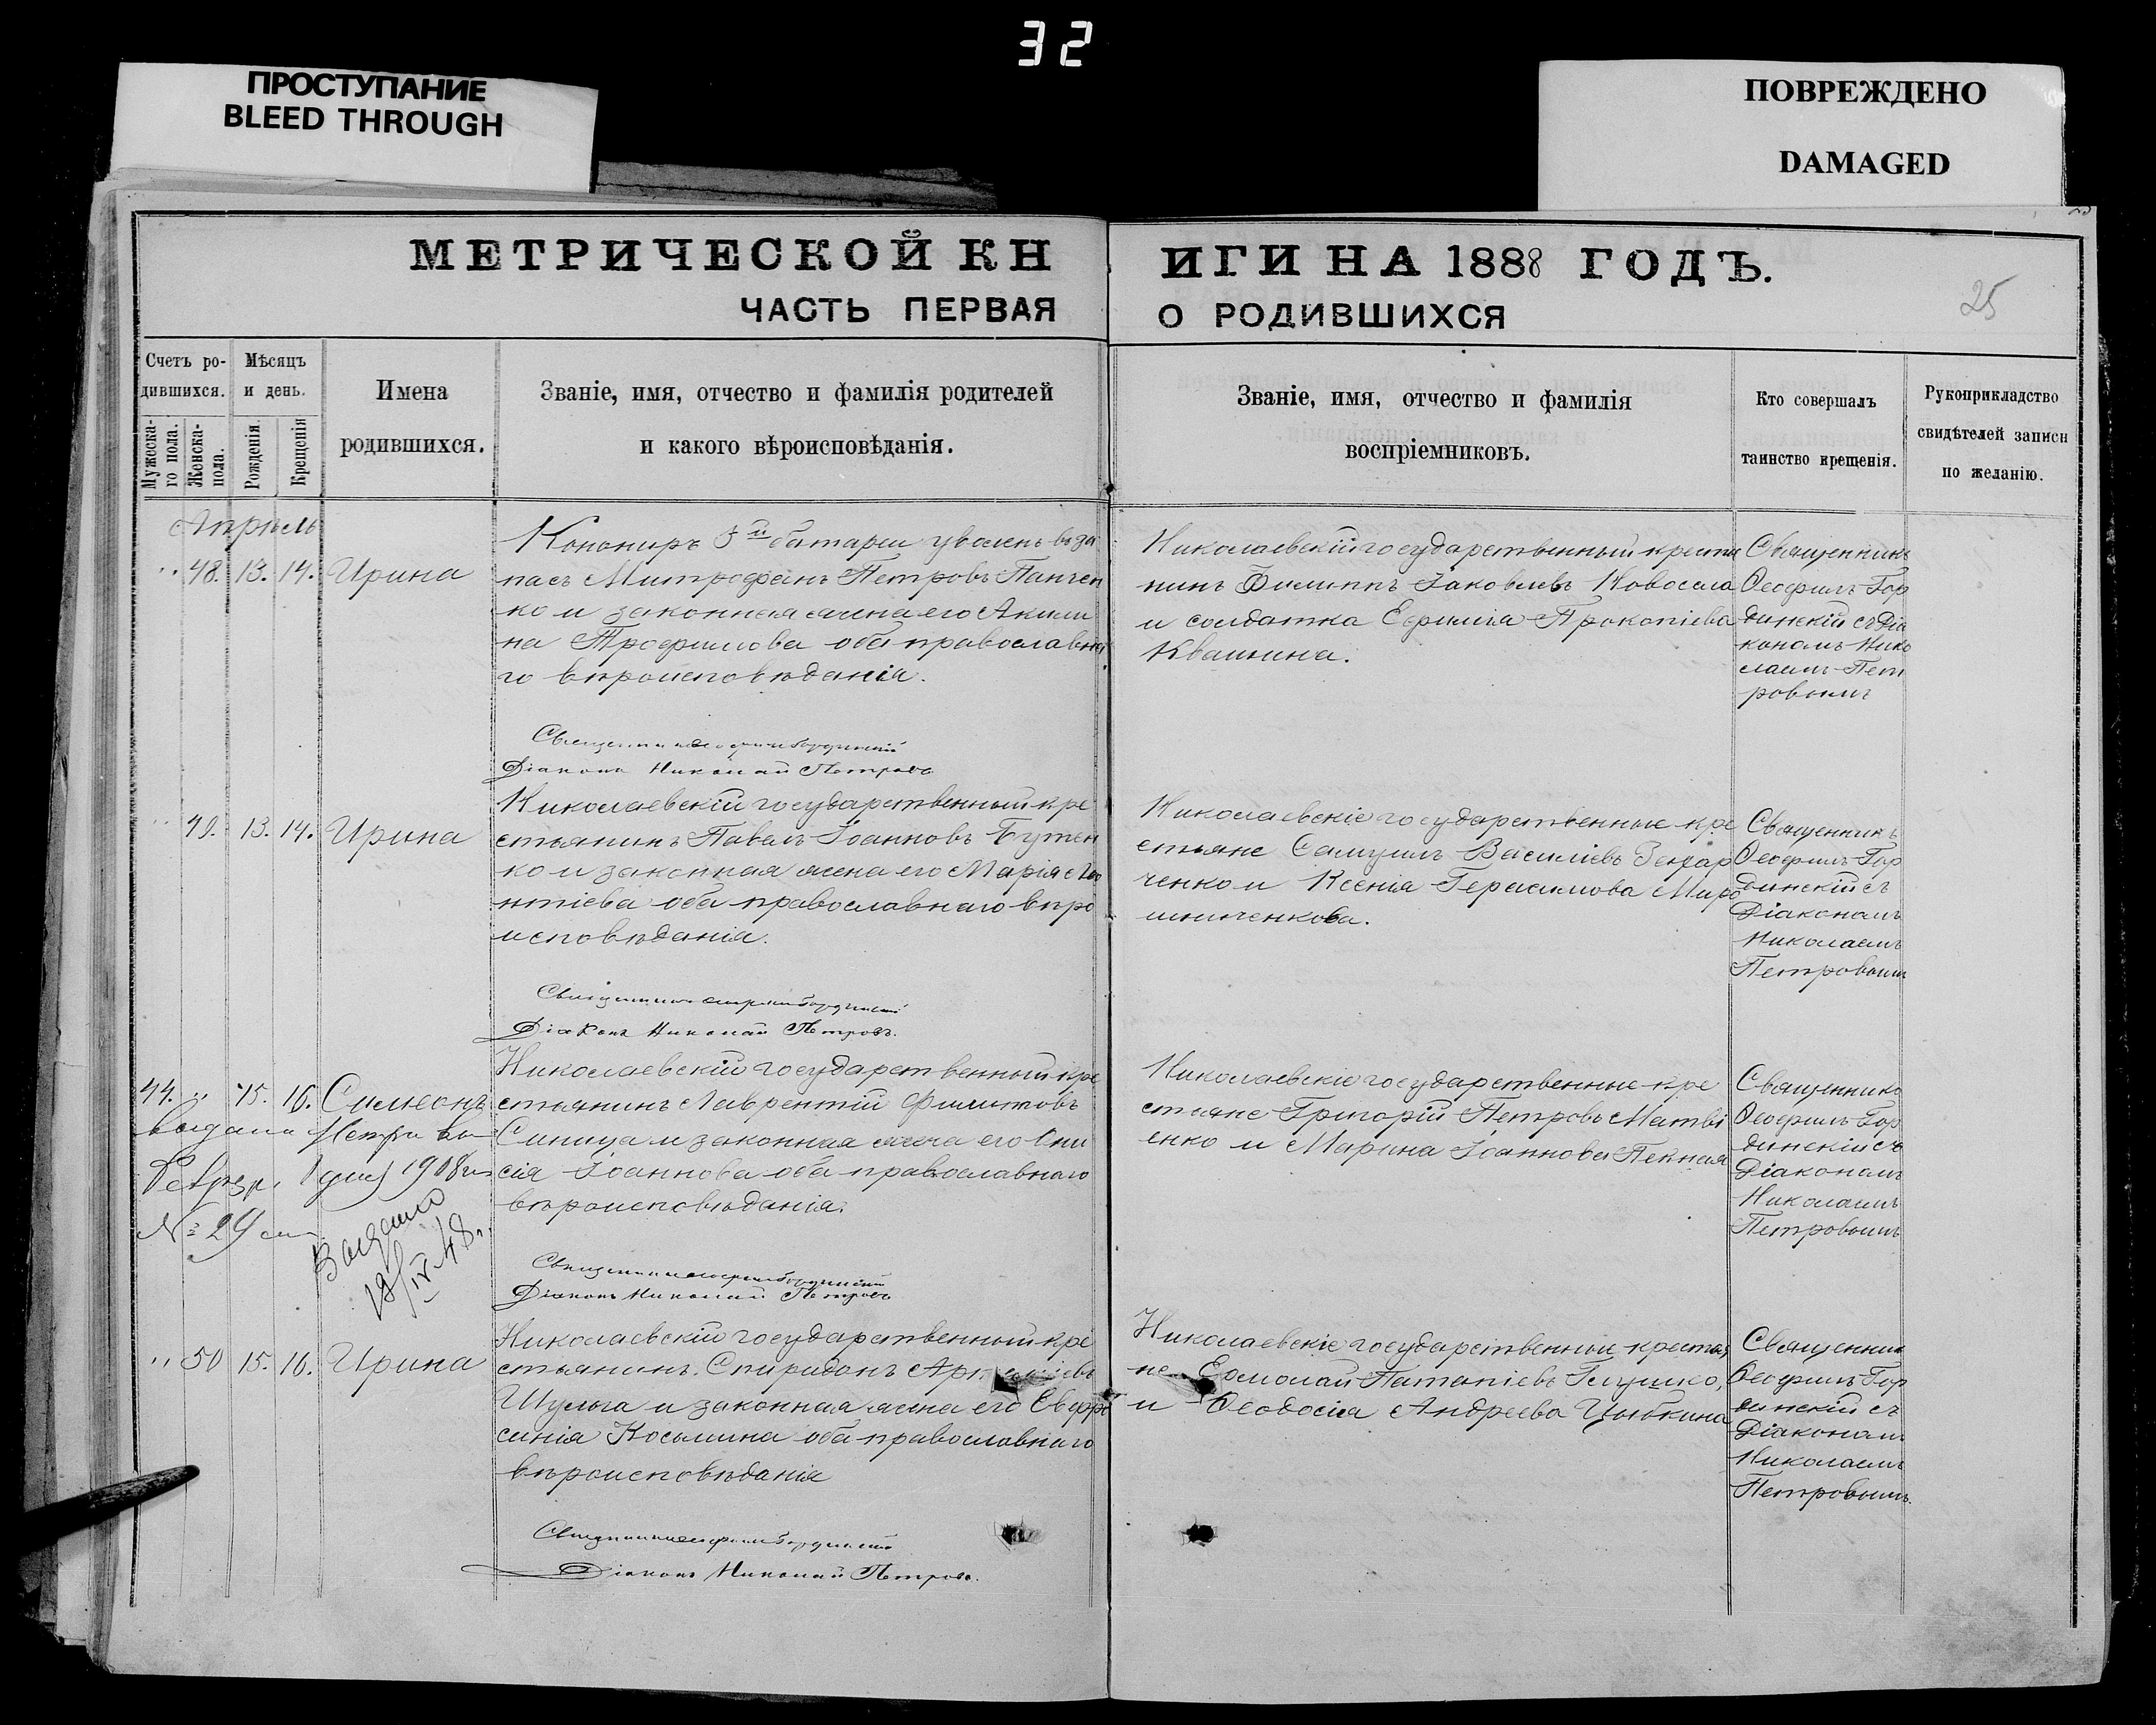 32
ПРОСТУПАНИЕ
BLEED THROUGH
ПОВРЕЖДЕНО
DAMAGED
МЕТРИЧЕСКОЙ КН
ИГИ НА 1888 ГОДЪ.
ЧАСТЬ ПЕРВАЯ
О РОДИВШИХСЯ
25
Счетъ ро-
дившихся.
Мужеска-
го пола.
Женска-
пола.
Мѣсяцъ
и день.
Рожденія.
Крещенія
Имена
родившихся.
Званіе, имя, отчество и фамилія родителей
и какого вѣроисповѣданія.
Званіе, имя, отчество и фамилія
воспріемниковъ.
Кто совершалъ
таинство крещенія.
Рукоприкладство
свидѣтелей записи
по желанію.
Апрѣль
„ 48. 13. 14. Ирина
Канониръ 5й батареи уволенъ въ за
пасъ Митрофанъ Петровъ Панчен
ко и законная жена его Акили
на Трофимова оба православна
го вѣроисповѣданія.
Николаевскій государственный крестья
нинъ Филиппъ Іаковлевъ Новосела
и солдатка Евфимія Прокопіева
Квашина.
Священникъ
Ѳеофилъ Гор
динскій съ Діа
кономъ Нико
лаемъ Пет
ровымъ
Діаконъ Николай Петровъ
„ 49. 13. 14. Ирина
Николаевскій государственный кре
стьянинъ Павелъ Іоанновъ Бутен
ко и законная жена его Марія Ле
нтіева оба православнаго вѣро
исповѣданія.
Николаевскіе государственные кре
стьяне Самуилъ Василіевъ Захар
ченко и Ксенія Герасимова Миро
шниченкова.
Священникъ
Ѳеофилъ Гор
динскій съ
Діакономъ
Николаемъ
Петровымъ
Діаконъ Николай Петровъ.
44. „ 15. 16. Симеонъ
Николаевскій государственный кре
стьянинъ Лаврентій Филиповъ
Синица и законная жена его Ани
сія Іоаннова оба православнаго
вѣроисповѣданія.
выдана Метри
1908
№ 29
Выдано
18/IV-48.
Николаевскіе государственные кре
стьяне Григорій Петровъ Матвi
енко и Марина Іоаннова Пекная
Священникъ
Ѳеофилъ Гор
динскій съ
Діакономъ
Николаемъ
Петровымъ
Діаконъ Николай Петровъ
„ 50 15. 16. Ирина
Николаевскій государственный кре
стьянинъ Спиридонъ
Шульга и законная жена его Евфро
синія Косьмина оба православнаго
вѣроисповѣданія
Николаевскіе государственные крестья
не Ермолай Патапіевъ Глушко,
и Ѳеодосія Андреева Цыбкина
Священник
Ѳеофилъ Гор
динскій съ
Діакономъ
Николаемъ
Петровымъ.
Діаконъ Николай Петровъ.